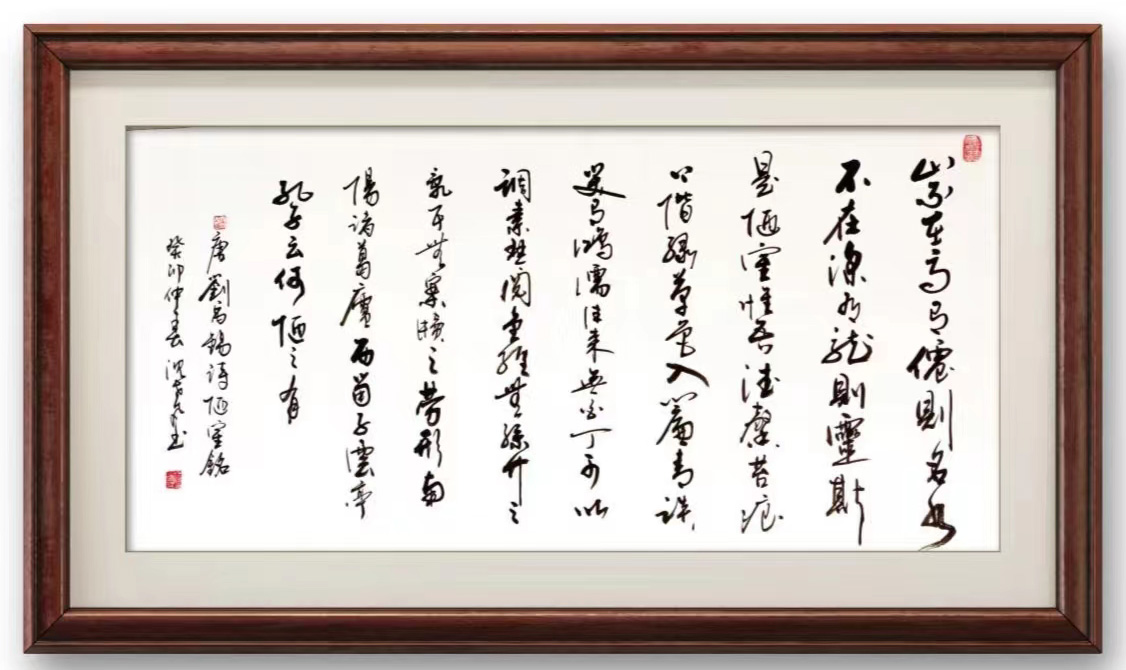 山不在高有僊則名水
不在深有龍則靈斯
是陋室惟吾德馨苔痕
上階綠草色入簾青談
笑有鴻儒往來無白丁可以
調素琴閱金經無絲竹之
亂耳無案牘之勞形南
陽諸葛廬西蜀子雲亭
孔子云何陋之有
唐劉禹錫詩陋室銘
癸卯仲春沈